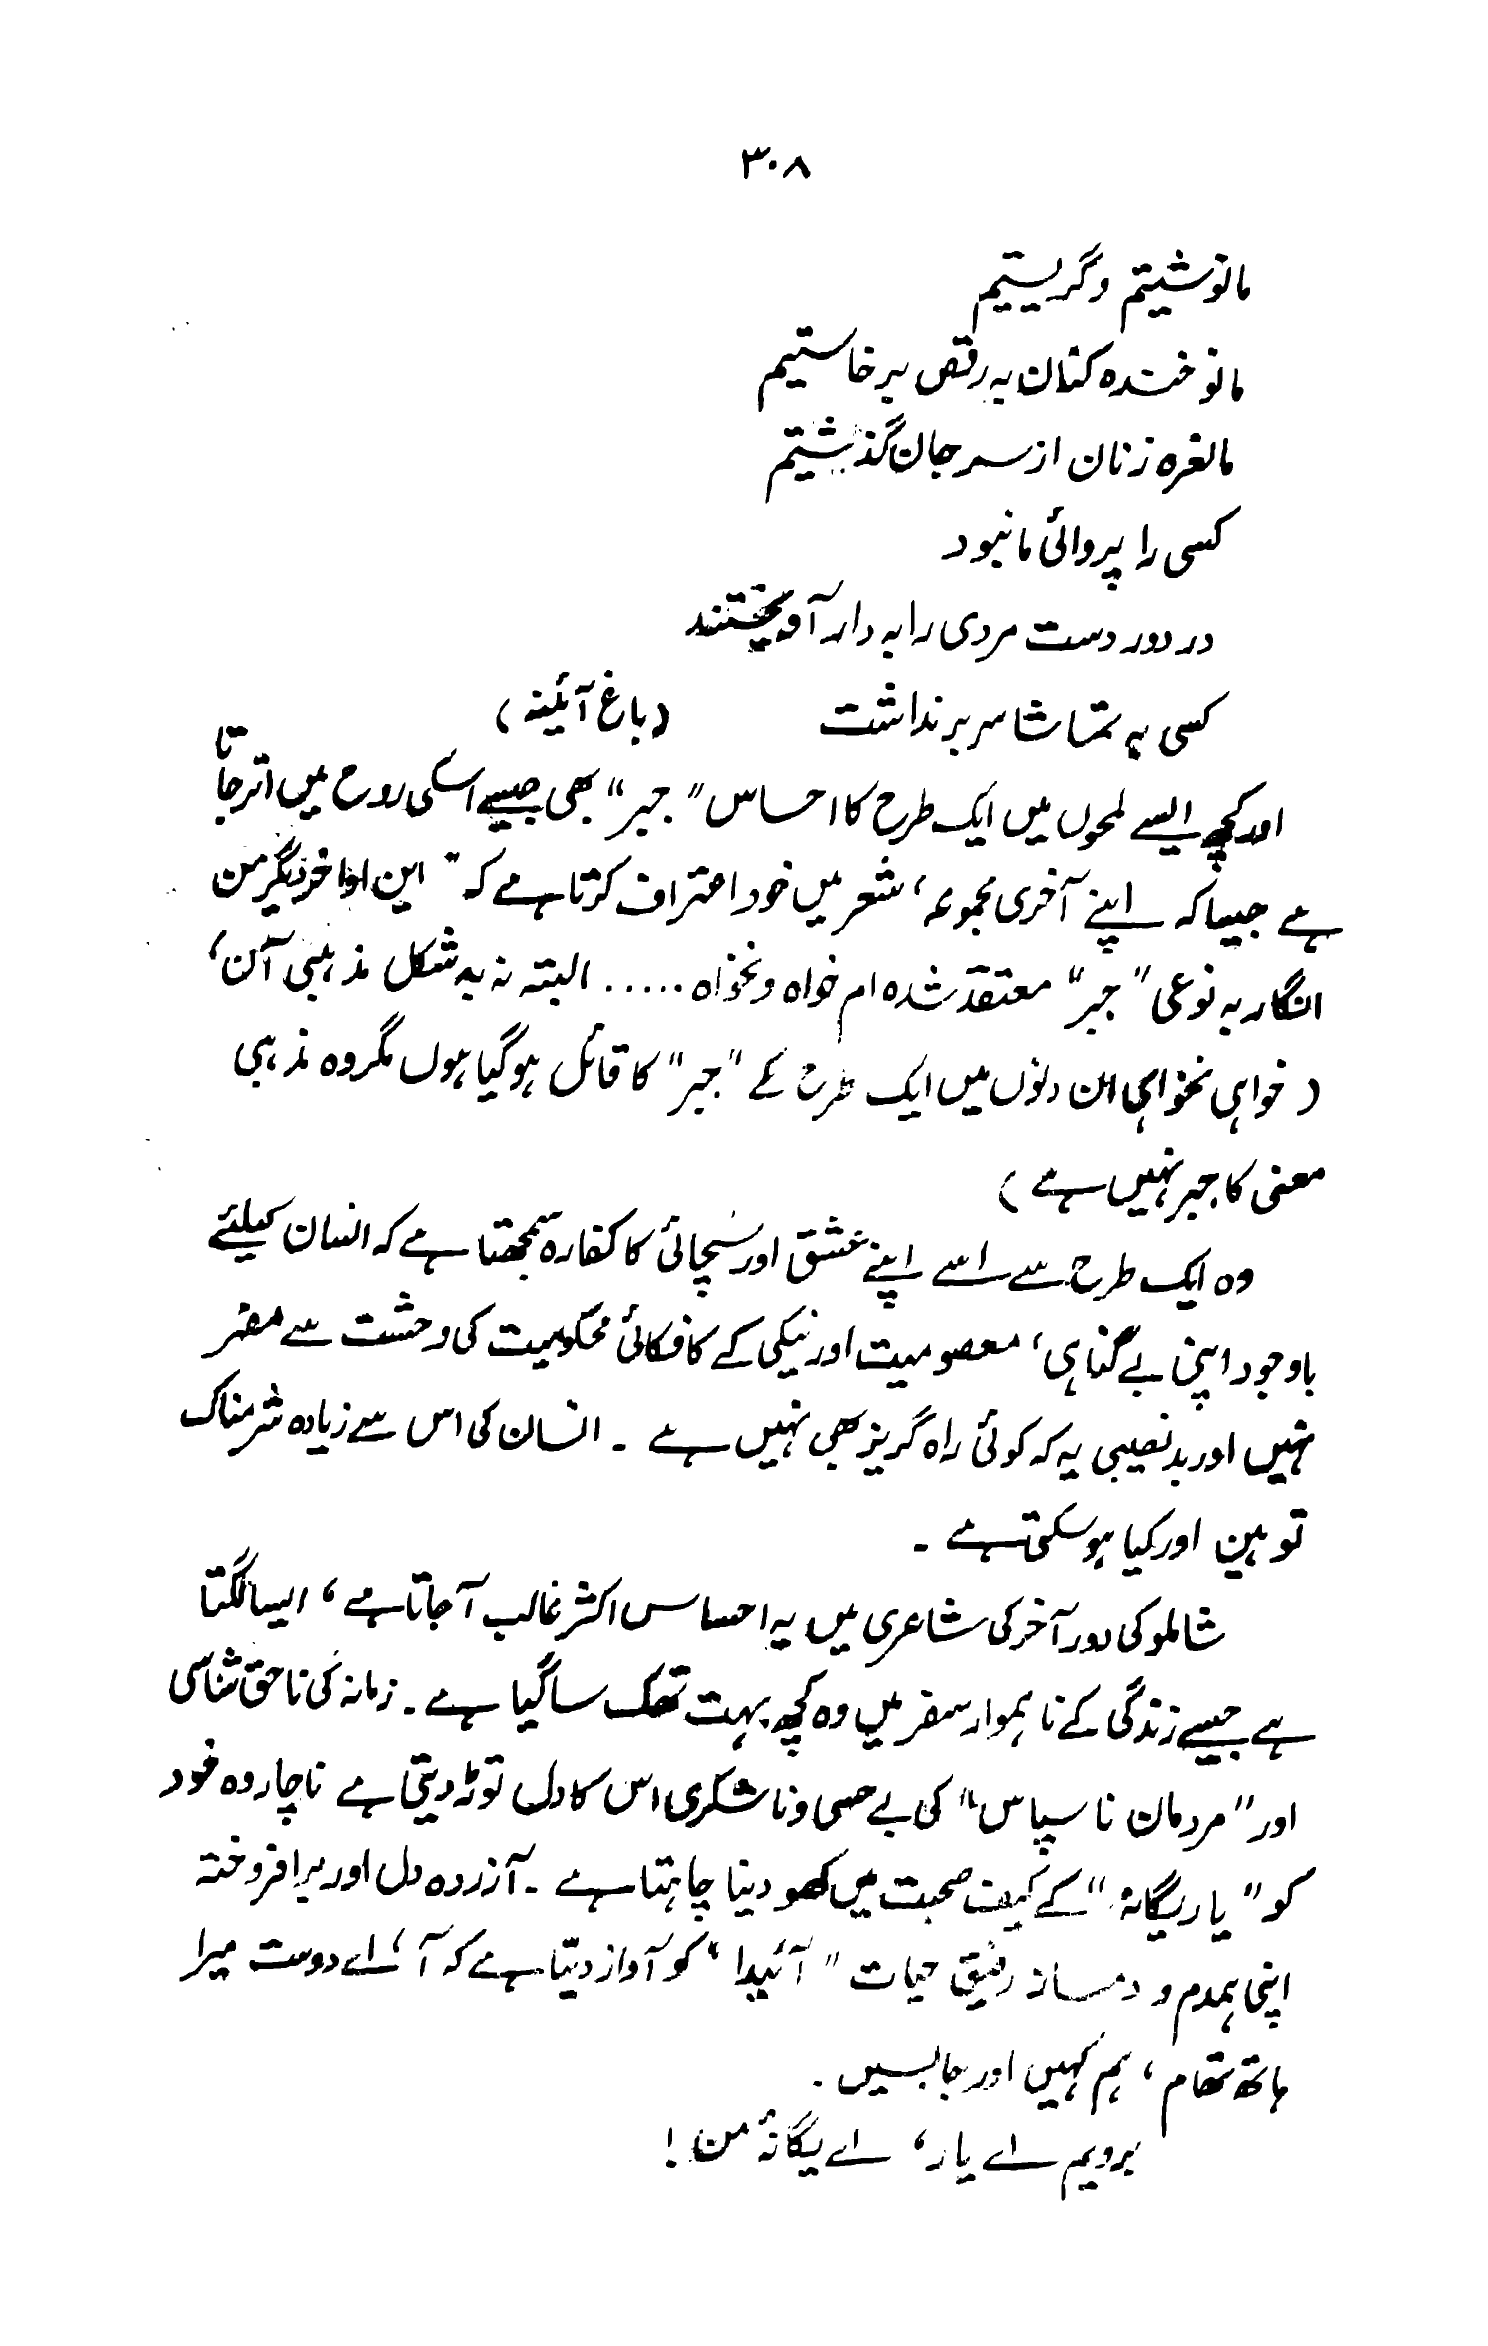 ۳۰۸
ما نوشتیم و گریستیم
ما نو خنده کنان به رقص برخاستیم
ما نعره زنان از سر جان گذشتیم
کسی را پروائی ما نبود
در دور دست مردی را به دار آویختند
کسی به تماشا سر برنداشت (باغ آئینہ)
اور کچھ ایسے لمحوں میں ایک طرح کا احساس "جبر" بھی جیسے اسکی روح میں اتر جاتا
ہے جیسا کہ اپنے آخری مجموعہ، شعر میں خود اعتراف کرتا ہے کہ " این اواخر دیگر من
انگار به نوعی "جبر" معتقد شده ام خواه و نخواه ..... البته نه به شکل مذہبی آن،
(خواہی نخواہی ان دنوں میں ایک طرح کے "جبر" کا قائل ہو گیا ہوں مگر وہ مذہبی
معنی کا جبر نہیں ہے)
وہ ایک طرح سے اسے اپنے عشق اور سچائی کا کفارہ سمجھتا ہے کہ انسان کیلئے
باوجود اپنی بے گناہی، معصومیت اور نیکی کے کافکائی محکومیت کی وحشت سے مفر
نہیں اور بدنصیبی یہ کہ کوئی راہ گریز بھی نہیں ہے ۔ انسان کی اس سے زیادہ شرمناک
توہین اور کیا ہو سکتی ہے ۔
شاملو کی دور آخر کی شاعری میں یہ احساس اکثر غالب آ جاتا ہے، ایسا لگتا
ہے جیسے زندگی کے ناہموار سفر میں وہ کچھ بہت تھک سا گیا ہے ۔ زمانہ کی ناحق شناسی
اور "مردمان ناسپاس" کی بے حسی و ناشکری اس کا دل توڑ دیتی ہے ناچار وہ خود
کو "یار یگانہ" کے کیف صحبت میں کھو دینا چاہتا ہے ۔ آزردہ دل اور برافروختہ
اپنی ہمدم و دمساز رفیق حیات "آئیدا" کو آواز دیتا ہے کہ آ، اے دوست میرا
ہاتھ تھام، ہم کہیں اور جا بسیں ۔
برویم اے یار، اے یگانۂ من !